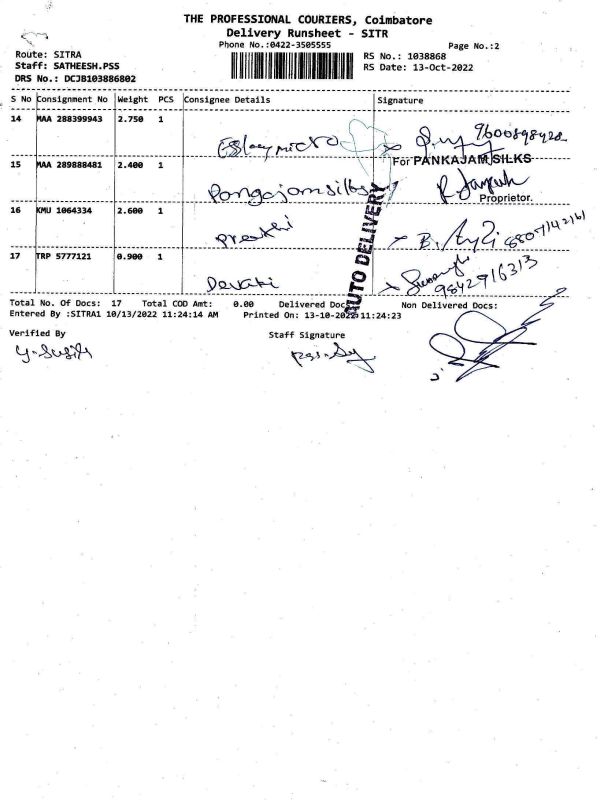 THE PROFESSIONAL COURIERS, Coimbatore
Delivery Runsheet - SITR
Phone No.:0422-3505555
Page No.:2
Route: SITRA
Staff: SATHEESH.PSS
DRS No.: DCJB103886802
RS No.: 1038868
RS Date: 13-Oct-2022
S No Consignment No Weight PCS Consignee Details Signature
14 MAA 288399943 2.750 1
9600898428
15 MAA 289888481 2.400 1
For PANKAJAM SILKS
Pangajamsilks
Proprietor.
16 KMU 1064334 2.600 1
Preethi
17 TRP 5777121 0.900 1
9842916313
Devaki
AUTO DELIVERY
Total No. Of Docs: 17 Total COD Amt: 0.00 Delivered Docs: Non Delivered Docs:
Entered By :SITRA1 10/13/2022 11:24:14 AM Printed On: 13-10-2022 11:24:23
Verified By Staff Signature